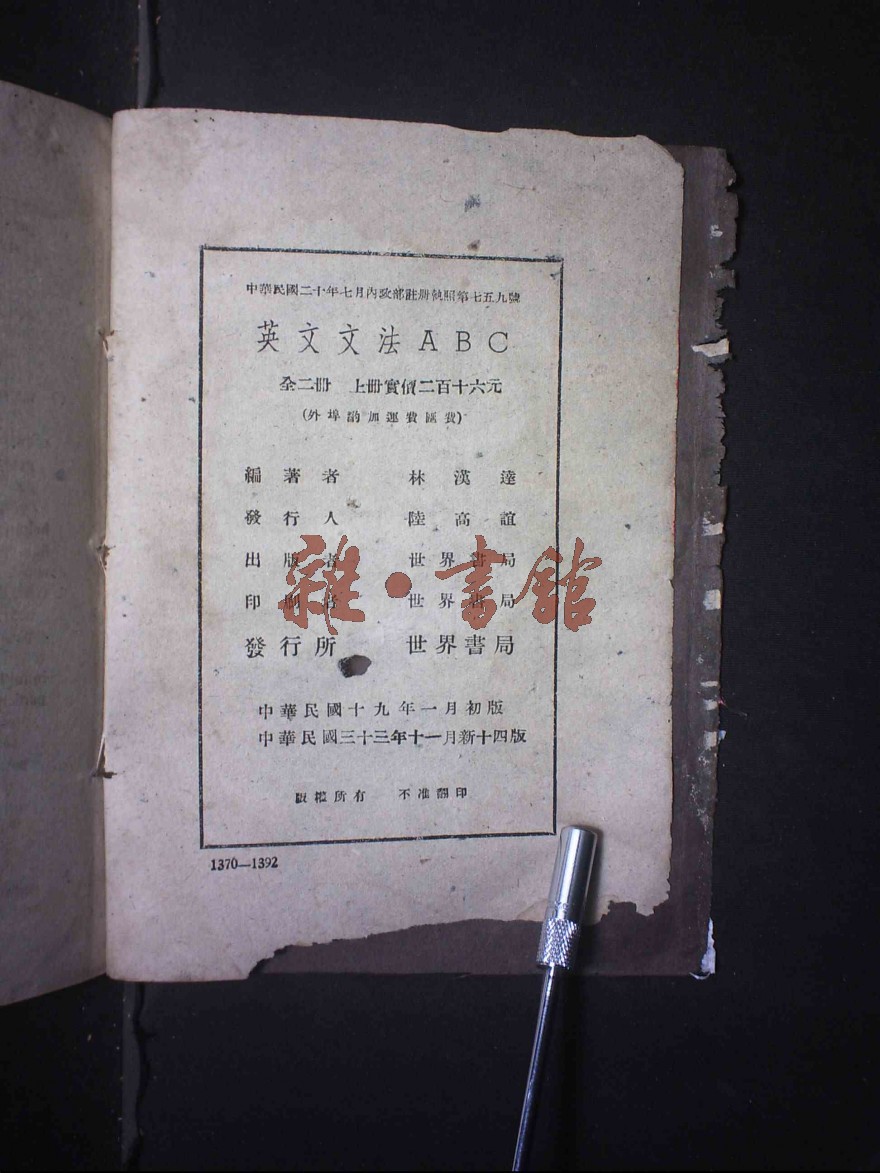 中華民國二十年七月內政部註册執照第七五九號
英文文法ABC
全二册　上册實價二百十六元
(外埠酌加運費匯費)
編著者　林漢達
發行人　陸高誼
出版者　世界書局
印刷者　世界書局
發行所　世界書局
中華民國十九年一月初版
中華民國三十三年十一月新十四版
版權所有　不准翻印
1370—1392
雜·書館